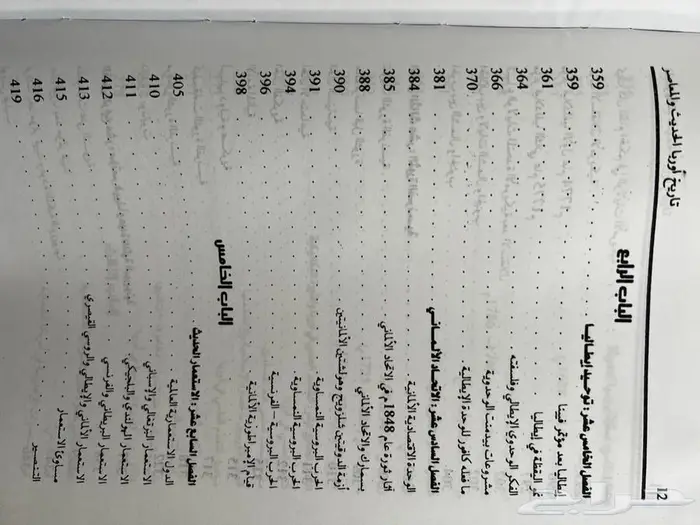 12
تاريخ أوربا الحديث والمعاصر
الباب الرابع
الفصل الخامس عشر: توحيد إيطاليا . . . 359
إيطاليا بعد مؤتمر فيينا . . . 359
نمو اليقظة في إيطاليا . . . 361
الفكر الوحدوي الإيطالي وفلسفته . . . 364
مشروعات بييدمنت الوحدوية . . . 366
ما فعله كافور للوحدة الإيطالية . . . 370
الفصل السادس عشر: الاتحاد الألماني . . . 381
الوحدة الاقتصادية الألمانية . . . 384
آثار ثورة عام 1848م في الاتحاد الألماني . . . 385
بسمارك والاتحاد الألماني . . . 388
أزمة الدوقتين شلزويج وهولشتين الألمانيتين . . . 390
الحرب البروسية النمساوية . . . 391
الحرب البروسية النمساوية . . . 394
الحرب البروسية - الفرنسية . . . 396
قيام الامبراطورية الألمانية . . . 398
الباب الخامس
الفصل السابع عشر: الاستعمار الحديث
الدول الاستعمارية العالمية . . . 405
الاستعمار البرتغالي والإسباني . . . 410
الاستعمار الهولندي والبلجيكي . . . 411
الاستعمار البريطاني والفرنسي . . . 412
الاستعمار الألماني والإيطالي والروسي القيصري . . . 413
مساوئ الاستعمار . . . 415
التنصير . . . 416
419
حراج